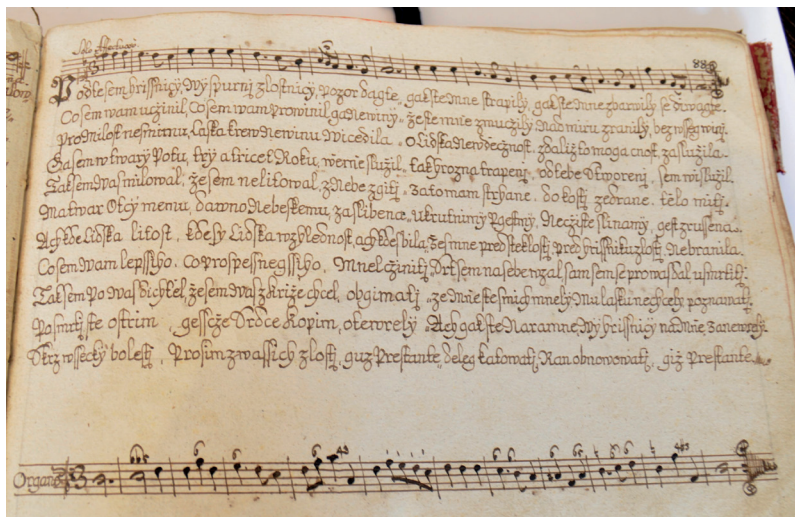 Solo Affectuosè
88
Podtesem hrissnicy, Wy spurni zlostnicy, pozor dagte, gak ste mne trapily, gak ste mne zbarwily se diwagte.
Co sem wam uczinil, Co sem wam prowinil, ga newiny, že ste mnie zmuczily, nad miru zranily, bez wssy winy.
Pro milost nesmirnu, Laska krew newinu wicedila. O lidska newdecznost, zdaliž to moga cnost zaslužila.
Ga sem w twary Potu, try a tricet Roku, werne služil, tak hrozna trapeni, od tebe stworeni, sem wislužil.
Tak sem was milowal, že sem nelitowal, z Nebe zgiti. Za to mam strhane, do kosti zedrane, tělo miti.
Ma twar Otcy memu, dawno Nebeskemu, zaslibena, ukrutnimy Pgestmy, Neczistie slinamy, gest zrussena.
Ach kde Lidska litost, kde sy Lidska wzhlednost, ach kde sbila, že s mne pred steklosti pred hrissniku zlosti Nebranila.
Co sem wam lepssiho, Co prospessnegssiho, Mnel cziniti, Krt sem na sebe wzal sam sem se prowazal usmrtiti.
Tak sem Po was dichtel, že sem was z križe chcel, obgimati, ze mnie ste smich mnely Mu lasku nechcely poznawati.
Po smrti ste ostrim, gessčze Srdce kopim, otewrely, Ach gak ste Naramne, Wy hrissnicy na Mne, zanewrely.
Skrz wssecky bolesti, Prosim z wassich zlosti, guz Prestante, deleg katowati, Ran obnowowati, giž Prestante.
Organo
6 6 6 6 43 6 6 6 6 6 6 6 6 43